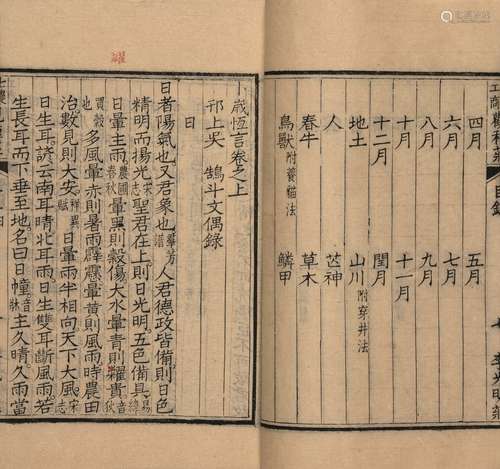 四月　五月
六月　七月
八月　九月
十月　十一月
十二月　閏月
地土　山川附穿井法
人　芒神
春牛　草木
鳥獸附養猫法　鱗甲
卜歲恆言卷之上
邗上吳　鵠斗文偶錄
日
日者陽氣也又君象也羣芳　人君德政皆備則日色
精明而揚光宋志聖君在上則日光明五色備具易緯
日暈主雨農圃春秋暈黑則穀傷大水暈青則糴貴音狄
買穀也多風暈赤則暑雨霹靂暈黃則風雨時農田
治數見則大安祥異賦日暈兩半相向天下大風宋志
日生耳諺云南耳晴北耳雨日生雙耳斷風雨若
生長耳而下垂至地名曰日幢音牀主久晴久雨當